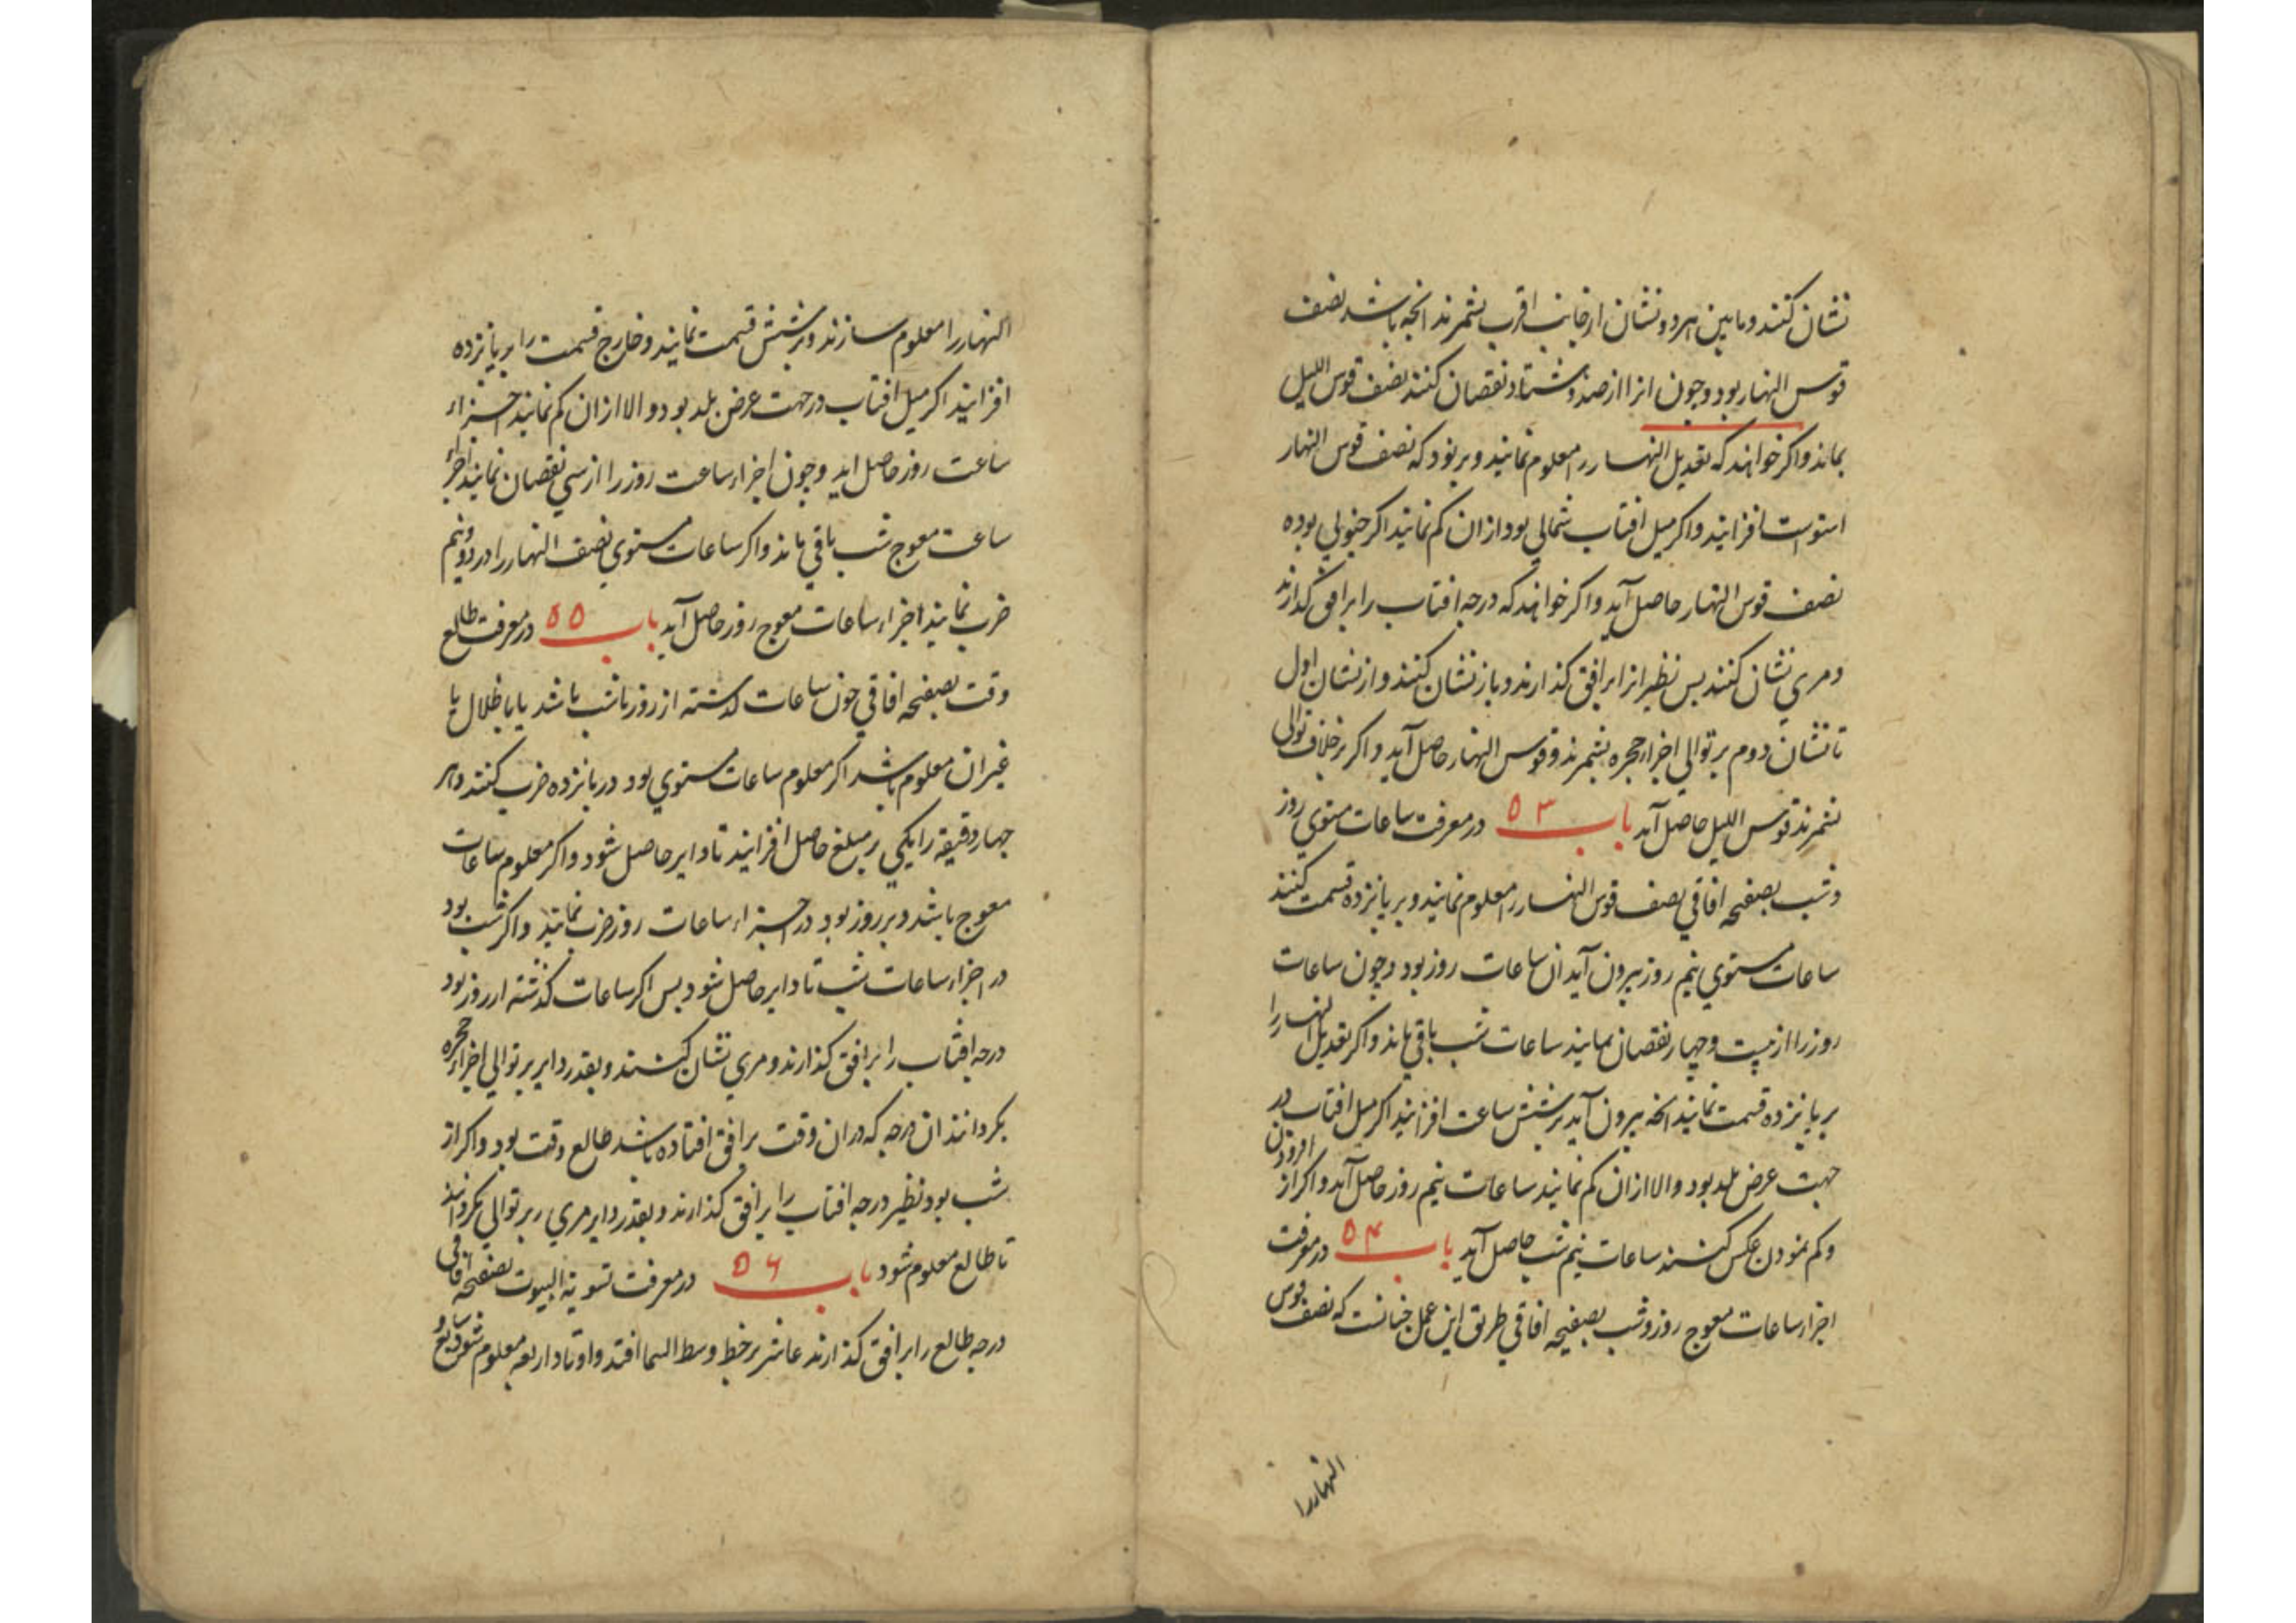 نشان کنند و مابین هر دو نشان از جانب اقرب بشمرند انچه باشد نصف
قوس النهار بود و چون انرا از صد و هشتاد نقصان کنند نصف قوس اللیل
بماند و اکر خواهند که تعدیل النهار را معلوم نمایند و بر نود که نصف قوس النهار
استواست افزایند و اکر میل افتاب شمالی بود ازان کم نمایند اکر جنوبی بوده
نصف قوس النهار حاصل آید و اکر خواهند که درجه افتاب را بر افق کذارند
و مری نشان کنند پس نظیر انرا بر افق کذارند و باز نشان کنند و از نشان اول
تا نشان دوم بر توالی اجزاء حجره بشمرند قوس النهار حاصل آید و اکر بر خلاف توالی
بشمرند قوس اللیل حاصل آید باب ۵۳ در معرفت ساعات مستوی روز
و شب بصفیحه افاقی نصف قوس النهار را معلوم نمایند و بر پانزده قسمت کنند
ساعات مستوی نیم روز بیرون آید ان ساعات روز بود و چون ساعات
روز را از بیست و چهار نقصان نمایند ساعات شب باقی ماند و اکر تعدیل النهار را
بر پانزده قسمت نمایند انچه بیرون آید بر شش ساعت افزایند اکر میل افتاب در
جهت عرض بلد بود و الا ازان کم نمایند ساعات نیم روز حاصل آید و اکر از افزودن
و کم نمودن عکس کنند ساعات نیم شب حاصل آید باب ۵۴ در معرفت
اجزاء ساعات معوج روز و شب بصفیحه افاقی طریق این عمل چنانست که نصف قوس
النهار را
النهار را معلوم سازند و بر شش قسمت نمایند و خارج قسمت را بر پانزده
افزایند اکر میل افتاب در جهت عرض بلد بود و الا ازان کم نمایند اجزاء
ساعت روز حاصل اید و چون اجزاء ساعت روز را از سی نقصان نمایند اجزاء
ساعت معوج شب باقی ماند و اکر ساعات مستوی نصف النهار را در دو و نیم
ضرب نمایند اجزاء ساعات معوج روز حاصل آید باب ۵۵ در معرفت طالع
وقت بصفیحه افاقی چون ساعات کذشته از روز یا شب باشد یا باظلال یا
غیر ان معلوم باشد اکر معلوم ساعات مستوی بود در پانزده ضرب کنند و هر
چهار دقیقه را یکی بر مبلغ حاصل افزایند تا دایر حاصل شود و اکر معلوم ساعات
معوج باشد و بر روز بود در اجزاء ساعات روز ضرب نمایند و اکر شب بود
در اجزاء ساعات شب تا دایر حاصل شود پس اکر ساعات کذشته از روز بود
درجه افتاب را بر افق کذارند و مری نشان کنند و بقدر دایر بر توالی اجزاء حجره
بکردانند ان درجه که دران وقت بر افق افتاده باشد طالع وقت بود و اکر از
شب بود نظیر درجه افتاب را بر افق کذارند و بقدر دایر مری بر توالی بکردانند
تا طالع معلوم شود باب ۵۶ در معرفت تسویة البیوت بصفیحه افاقی
درجه طالع را بر افق کذارند عاشر بر خط وسط السما افتد و اوتاد اربعه معلوم شود